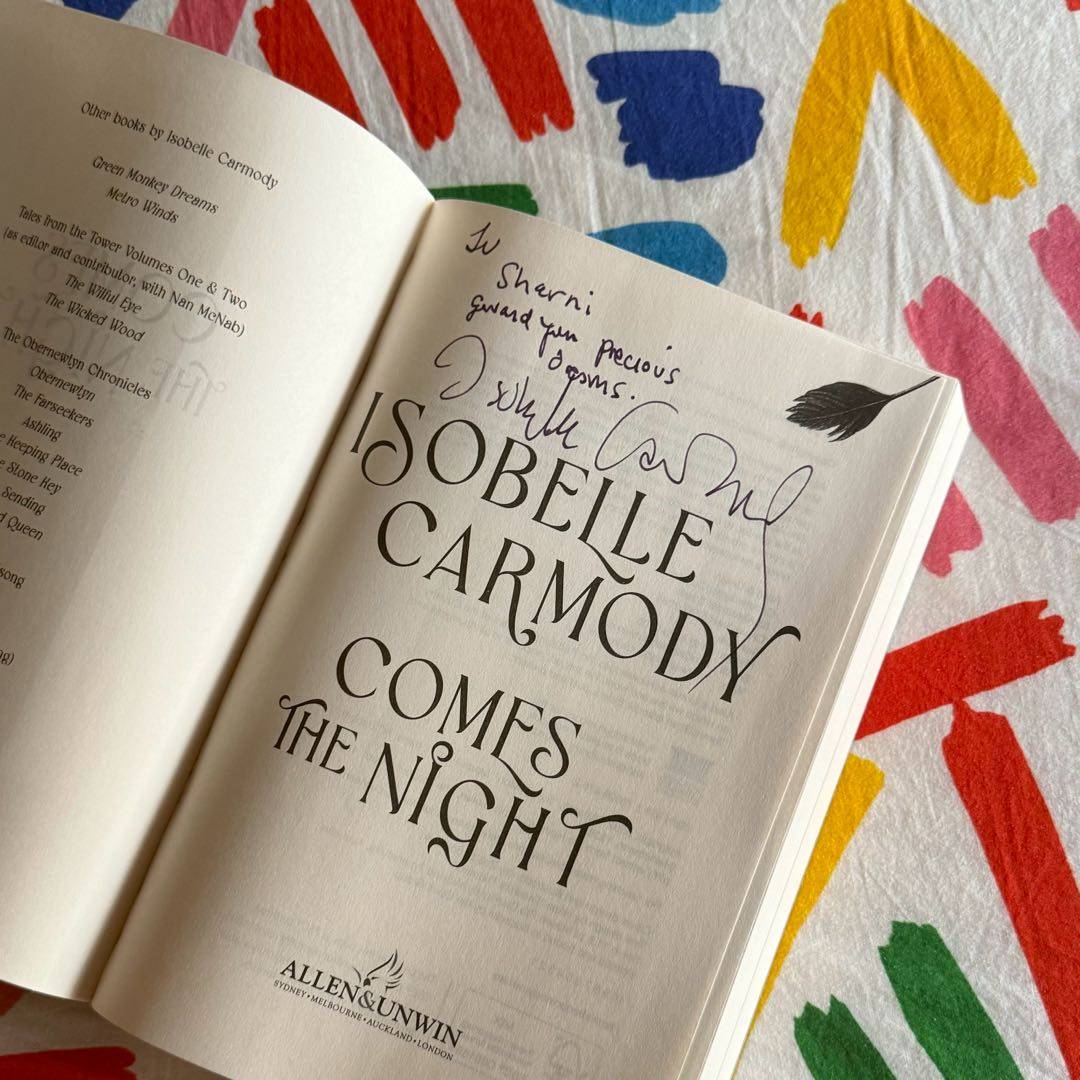 Other books by Isobelle Carmody
Green Monkey Dreams
Metro Winds
Tales from the Tower Volumes One & Two
(as editor and contributor, with Nan McNab)
The Wilful Eye
The Wicked Wood
The Obernewtyn Chronicles
Obernewtyn
The Farseekers
Ashling
Keeping Place
Stone Key
Sending
Queen
song
To
Sharni
guard your precious
dreams.
Isobelle Carmody
ISOBELLE
CARMODY
COMES
THE NIGHT
ALLEN&UNWIN
SYDNEY•MELBOURNE•AUCKLAND•LONDON